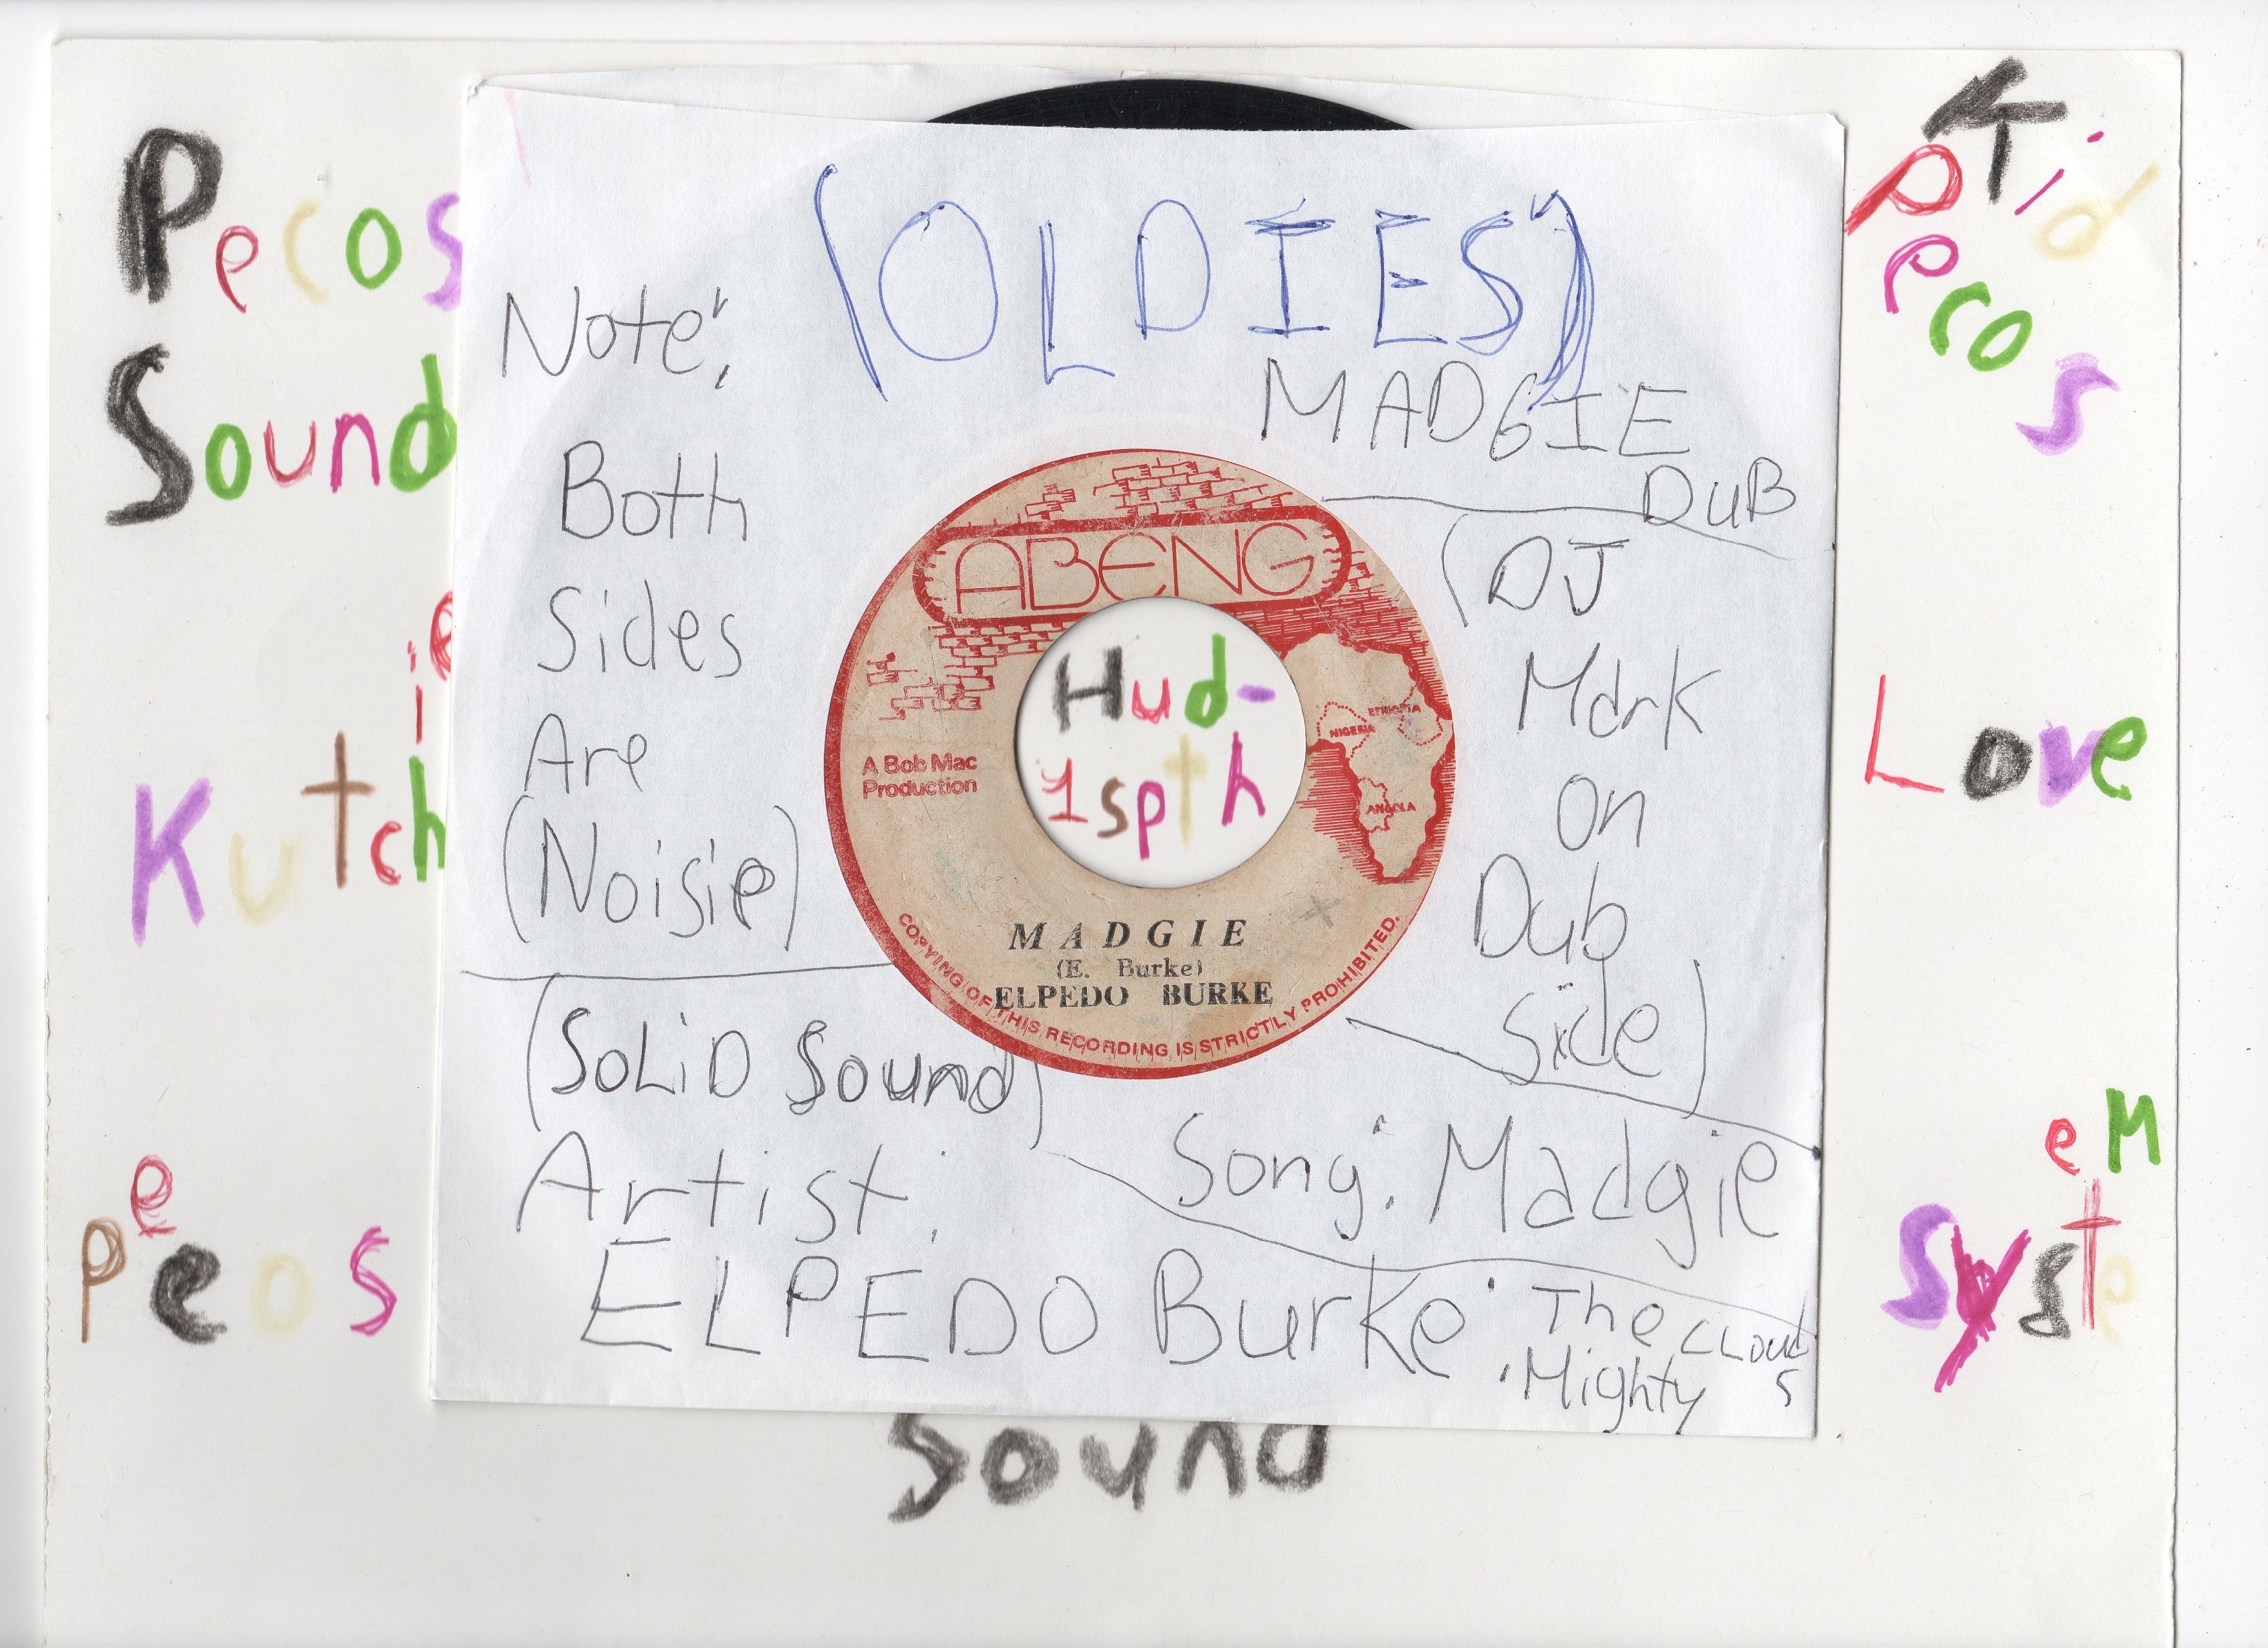 Pecos
Sound
Kutchie
Peeos
Sound
Kid
Pecos
Love
System
(OLDIES)
Note:
Both
Sides
Are
(Noisie)
(SoLiD Sound)
MADGIE
DuB
(DJ
Mark
on
Dub
Side)
Artist:
ELPEDO Burke
Song: Madgie
The
Mighty
CLOUDS
ABENG
ETHIOPIA
NIGERIA
ANGOLA
A Bob Mac
Production
Hud-
1spth
MADGIE
(E. Burke)
ELPEDO BURKE
COPYING OF THIS RECORDING IS STRICTLY PROHIBITED.